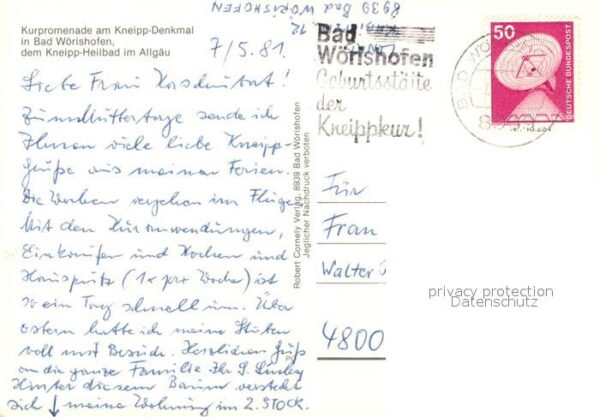 Kurpromenade am Kneipp-Denkmal
in Bad Wörishofen,
dem Kneipp-Heilbad im Allgäu
7/5.81.
Liebe Frau
Zum Muttertage sende ich
Ihnen viele liebe Kneipp-
grüße aus meinen Ferien.
Die Wochen vergehen im Fluge,
Mit den Kuranwendungen,
Einkaufen und Kochen und
Hausputz (1x pro Woche) ist
so ein Tag schnell um. Über
Ostern hatte ich meine
voll mit Besuch. Herzlichen Gruß
an die ganze Familie Ihr
Hinter diesem Baum versteckt
sich ↓ meine Wohnung im 2. STOCK.
Robert Cornely Verlag, 8939 Bad Wörishofen
Jeglicher Nachdruck verboten
8939 Bad WÖRISHOFEN
Bad
Wörishofen
Geburtsstätte
der
Kneippkur!
BAD WÖ
50
DEUTSCHE BUNDESPOST
Für
Frau
Walter
4800
privacy protection
Datenschutz